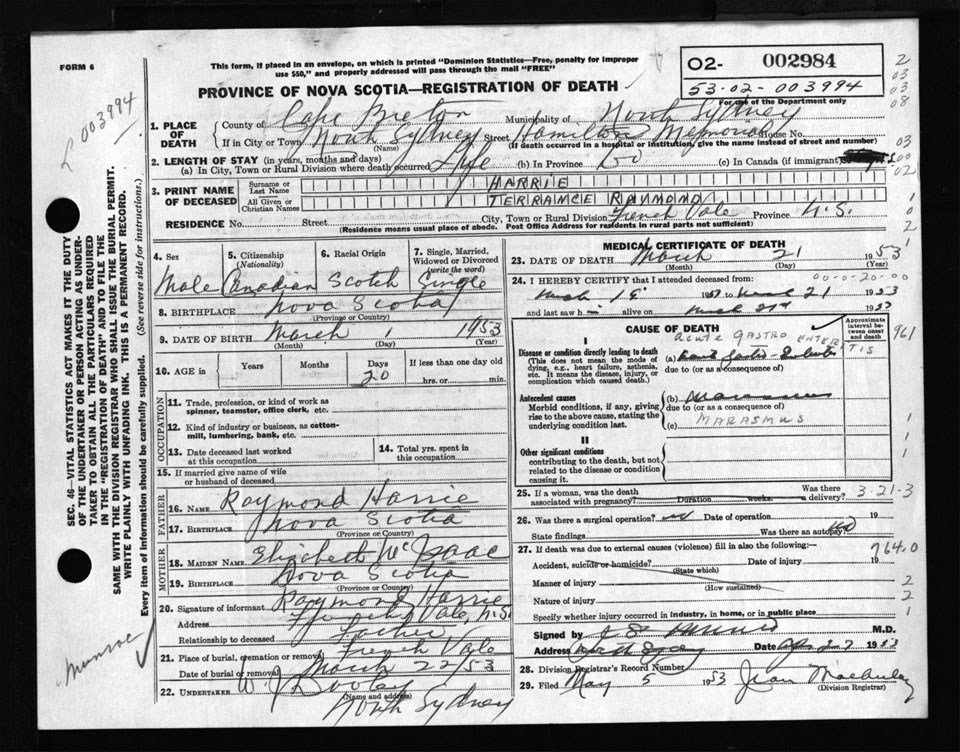 FORM 6
This form, if placed in an envelope, on which is printed "Dominion Statistics—Free, penalty for improper
use $50," and properly addressed will pass through the mail "FREE"
O2- 002984
53-02-003994
For use of the Department only
PROVINCE OF NOVA SCOTIA—REGISTRATION OF DEATH
003994
1. PLACE OF DEATH
County of Cape Breton Municipality of North Sydney
If in City or Town North Sydney Street Hamilton Memorial House No.
(Name) (If death occurred in a hospital or institution, give the name instead of street and number)
2. LENGTH OF STAY (in years, months and days)
(a) In City, Town or Rural Division where death occurred Life (b) In Province Do (c) In Canada (if immigrant)
3. PRINT NAME OF DECEASED
Surname or Last Name HARRIE
All Given or Christian Names TERRANCE RAYMOND
RESIDENCE No. Street City, Town or Rural Division French Vale Province N.S.
(Residence means usual place of abode. Post Office Address for residents in rural parts not sufficient)
4. Sex Male
5. Citizenship (Nationality) Canadian
6. Racial Origin Scotch
7. Single, Married, Widowed or Divorced (write the word) Single
8. BIRTHPLACE Nova Scotia
(Province or Country)
9. DATE OF BIRTH March 1953
(Month) (Day) (Year)
10. AGE in Years Months Days 20 If less than one day old hrs. or min.
OCCUPATION
11. Trade, profession, or kind of work as
spinner, teamster, office clerk, etc.
12. Kind of industry or business, as cotton-
mill, lumbering, bank, etc.
13. Date deceased last worked
at this occupation
14. Total yrs. spent in
this occupation
15. If married give name of wife
or husband of deceased
FATHER
16. NAME Raymond Harrie
17. BIRTHPLACE Nova Scotia
(Province or Country)
MOTHER
18. MAIDEN NAME Elizabeth McIsaac
19. BIRTHPLACE Nova Scotia
(Province or Country)
20. Signature of informant Raymond Harrie
Address French Vale, N.S.
Relationship to deceased Father
21. Place of burial, cremation or removal French Vale
Date of burial or removal March 22/53
22. UNDERTAKER W. J. Dooley
(Name and address)
North Sydney
MEDICAL CERTIFICATE OF DEATH
23. DATE OF DEATH March 21 1953
(Month) (Day) (Year)
24. I HEREBY CERTIFY that I attended deceased from: 00-0-20-00
21 1953
and last saw h alive on 1953
CAUSE OF DEATH
Approximate interval between onset and death
I
Disease or condition directly leading to death
(This does not mean the mode of
dying, e.g., heart failure, asthenia,
etc. It means the disease, injury, or
complication which caused death.)
ACUTE GASTRO ENTERITIS
(a)
due to (or as a consequence of)
Antecedent causes
Morbid conditions, if any, giving
rise to the above cause, stating the
underlying condition last.
(b) Marasmus
due to (or as a consequence of)
(c) MARASMUS
II
Other significant conditions
contributing to the death, but not
related to the disease or condition
causing it.
25. If a woman, was the death
associated with pregnancy? Duration weeks. Was there a delivery? 3-21-3
26. Was there a surgical operation? no Date of operation 19
State findings Was there an autopsy? No
27. If death was due to external causes (violence) fill in also the following:— 764.0
Accident, suicide or homicide? Date of injury 19
(State which)
Manner of injury
(How sustained)
Nature of injury
Specify whether injury occurred in industry, in home, or in public place
Signed by M.D.
Address North Sydney Date 27 1953
28. Division Registrar's Record Number
29. Filed May 5 1953 Jean MacAulay
(Division Registrar)
SEC. 46—VITAL STATISTICS ACT MAKES IT THE DUTY
OF THE UNDERTAKER OR PERSON ACTING AS UNDER-
TAKER TO OBTAIN ALL THE PARTICULARS REQUIRED
IN THE "REGISTRATION OF DEATH" AND TO FILE THE
SAME WITH THE DIVISION REGISTRAR WHO SHALL ISSUE THE BURIAL PERMIT.
WRITE PLAINLY WITH UNFADING INK. THIS IS A PERMANENT RECORD.
Every item of information should be carefully supplied. (See reverse side for instructions.)
Munroe
2
03
03
08
03
00
02
1
0
2
961
1
1
1
2
2
1